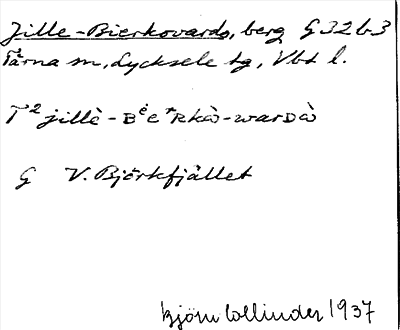 Jille-Bierkovardo, berg G 32 b 3
Tärna sn, Lycksele tg, Vbt l.
T² jillè-Bᵉ̀eʳRkὼ-warDὼ
G V. Björkfjället
Björn Collinder 1937